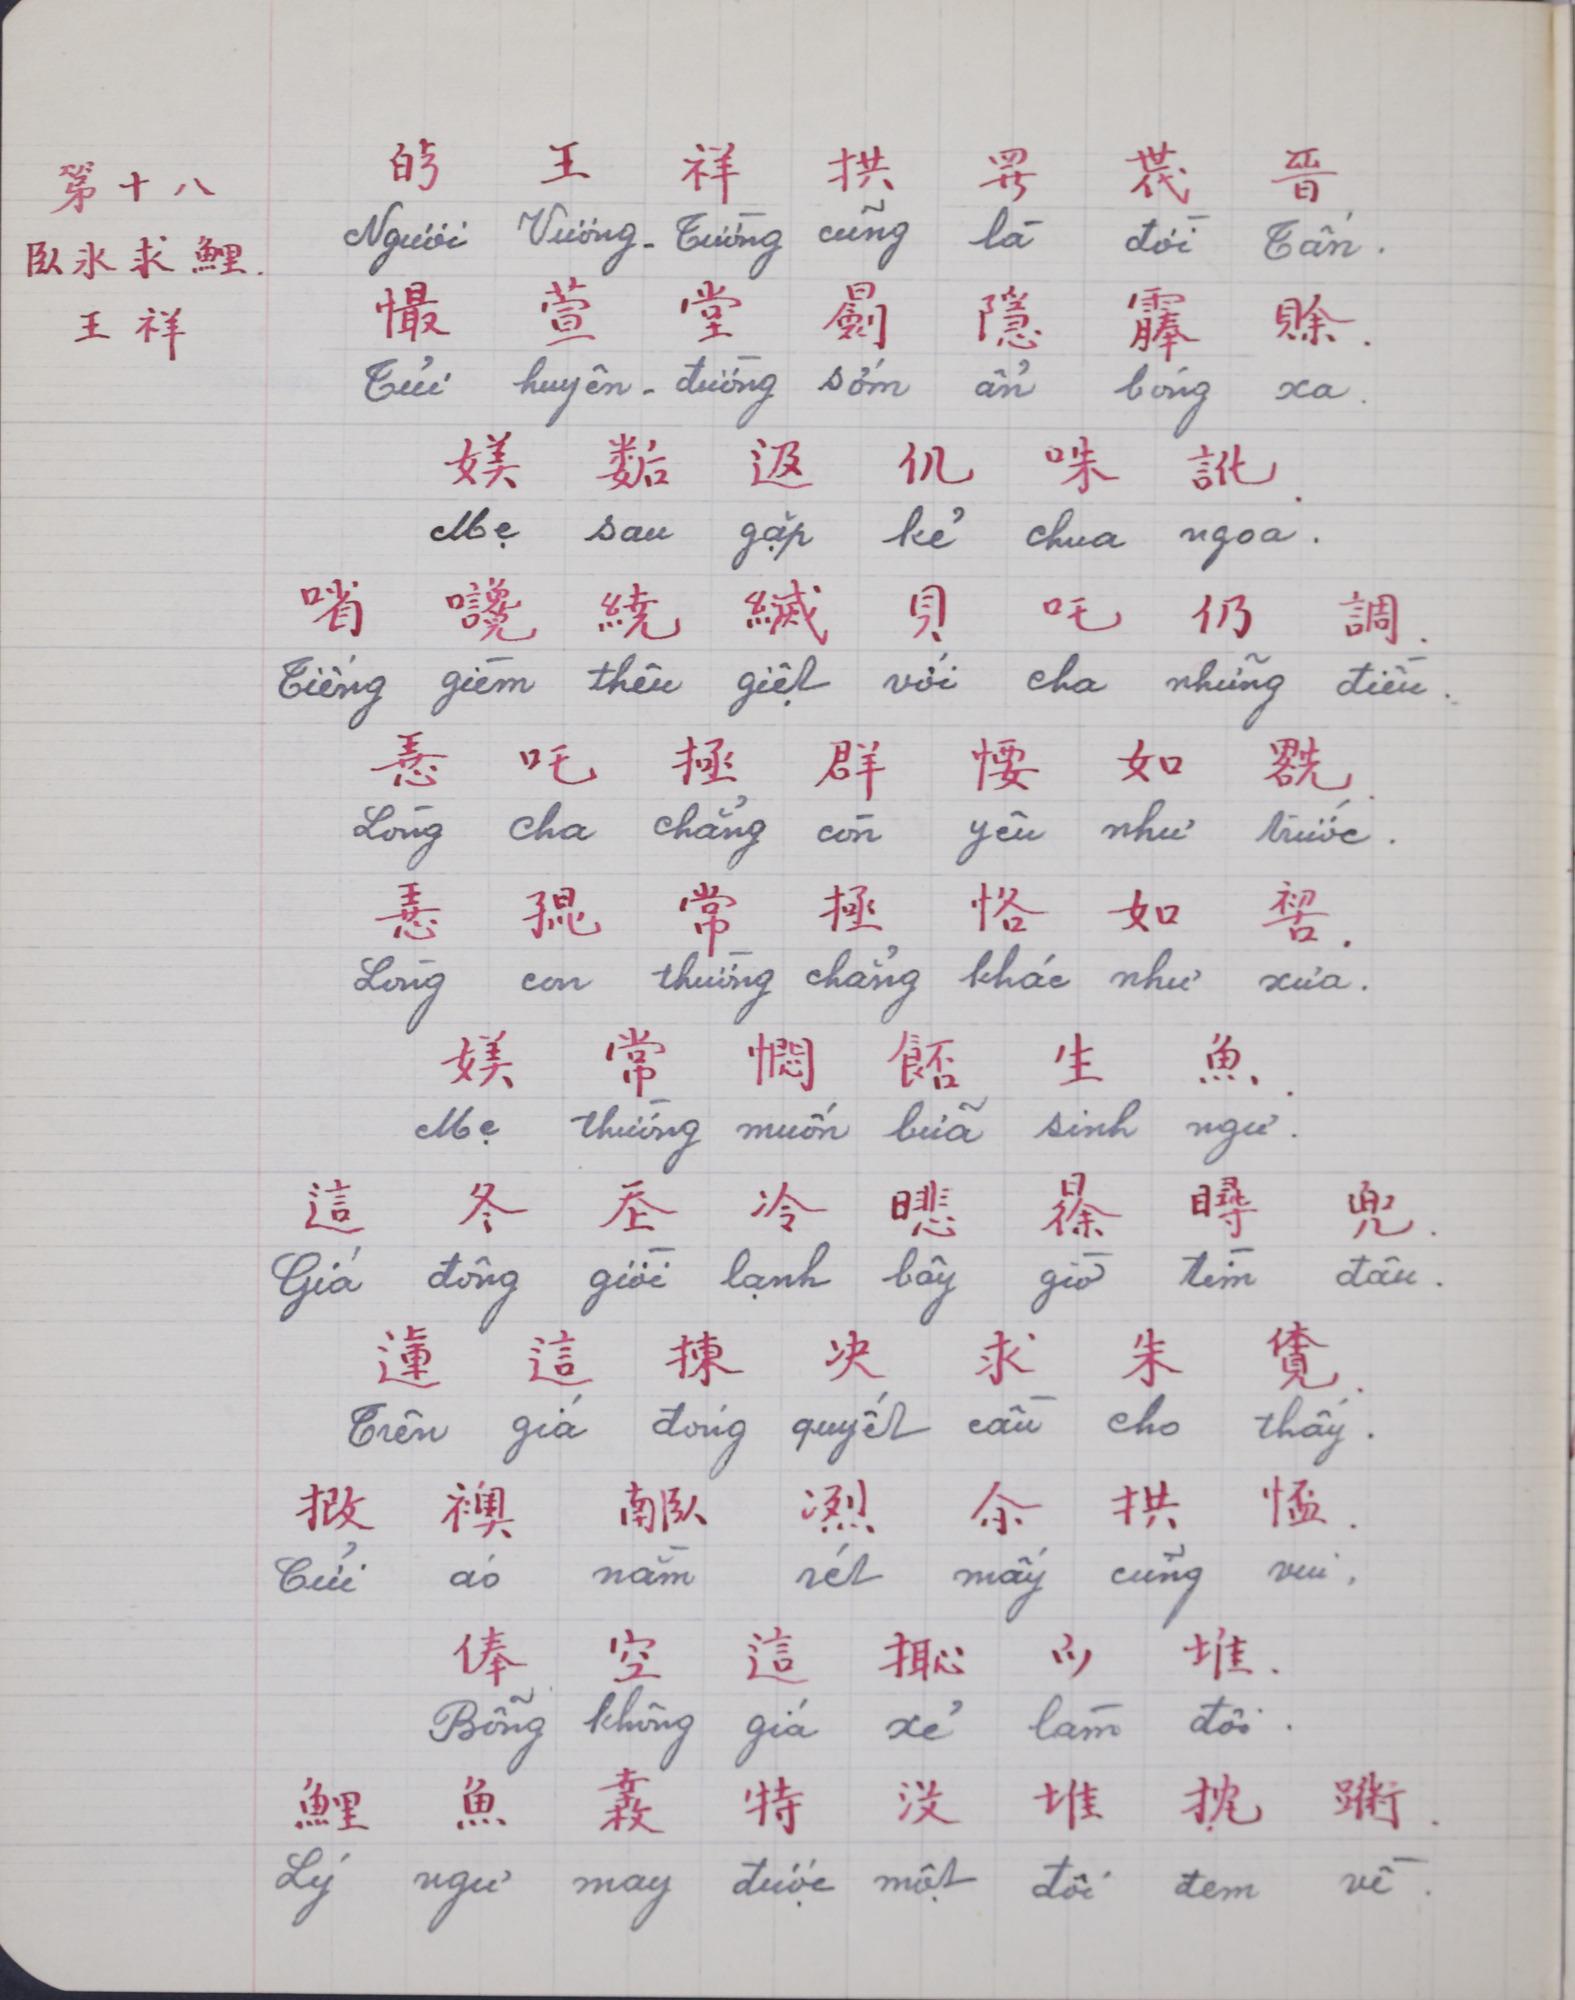 第十八
臥氷求鯉.
王祥
王祥拱𱺵𠁀晋
Người Vương-Tường cũng là đời Tấn.
萱堂𣋽隱䨦賒.
Tủi huyên-đường sớm ẩn bóng xa.
媄𡢐返仉咮訛.
Mẹ sau gặp kẻ chua ngoa.
㗂讒繞貝吒仍調.
Tiếng gièm thêu giệt với cha những điều.
𢚸吒拯群㤇如𠓀.
Lòng cha chẳng còn yêu như trước.
𢚸𡥵常拯恪如𠸗.
Lòng con thường chẳng khác như xưa.
媄常憫𩛷生魚.
Mẹ thường muốn bữa sinh ngư.
這冬𡗶冷𣊾𣇞尋兜.
Giá đông giời lạnh bây giờ tìm đâu.
𨕭這揀决求朱𧡊.
Trên giá đóng quyết cầu cho thấy.
襖冽余拱𢝙.
Cởi áo nằm rét mấy cũng vui.
俸空這𢯏𫜵堆.
Bỗng không giá xẻ làm đôi.
鯉魚特没堆抌𧗱.
Lý ngư may được một đôi đem về.